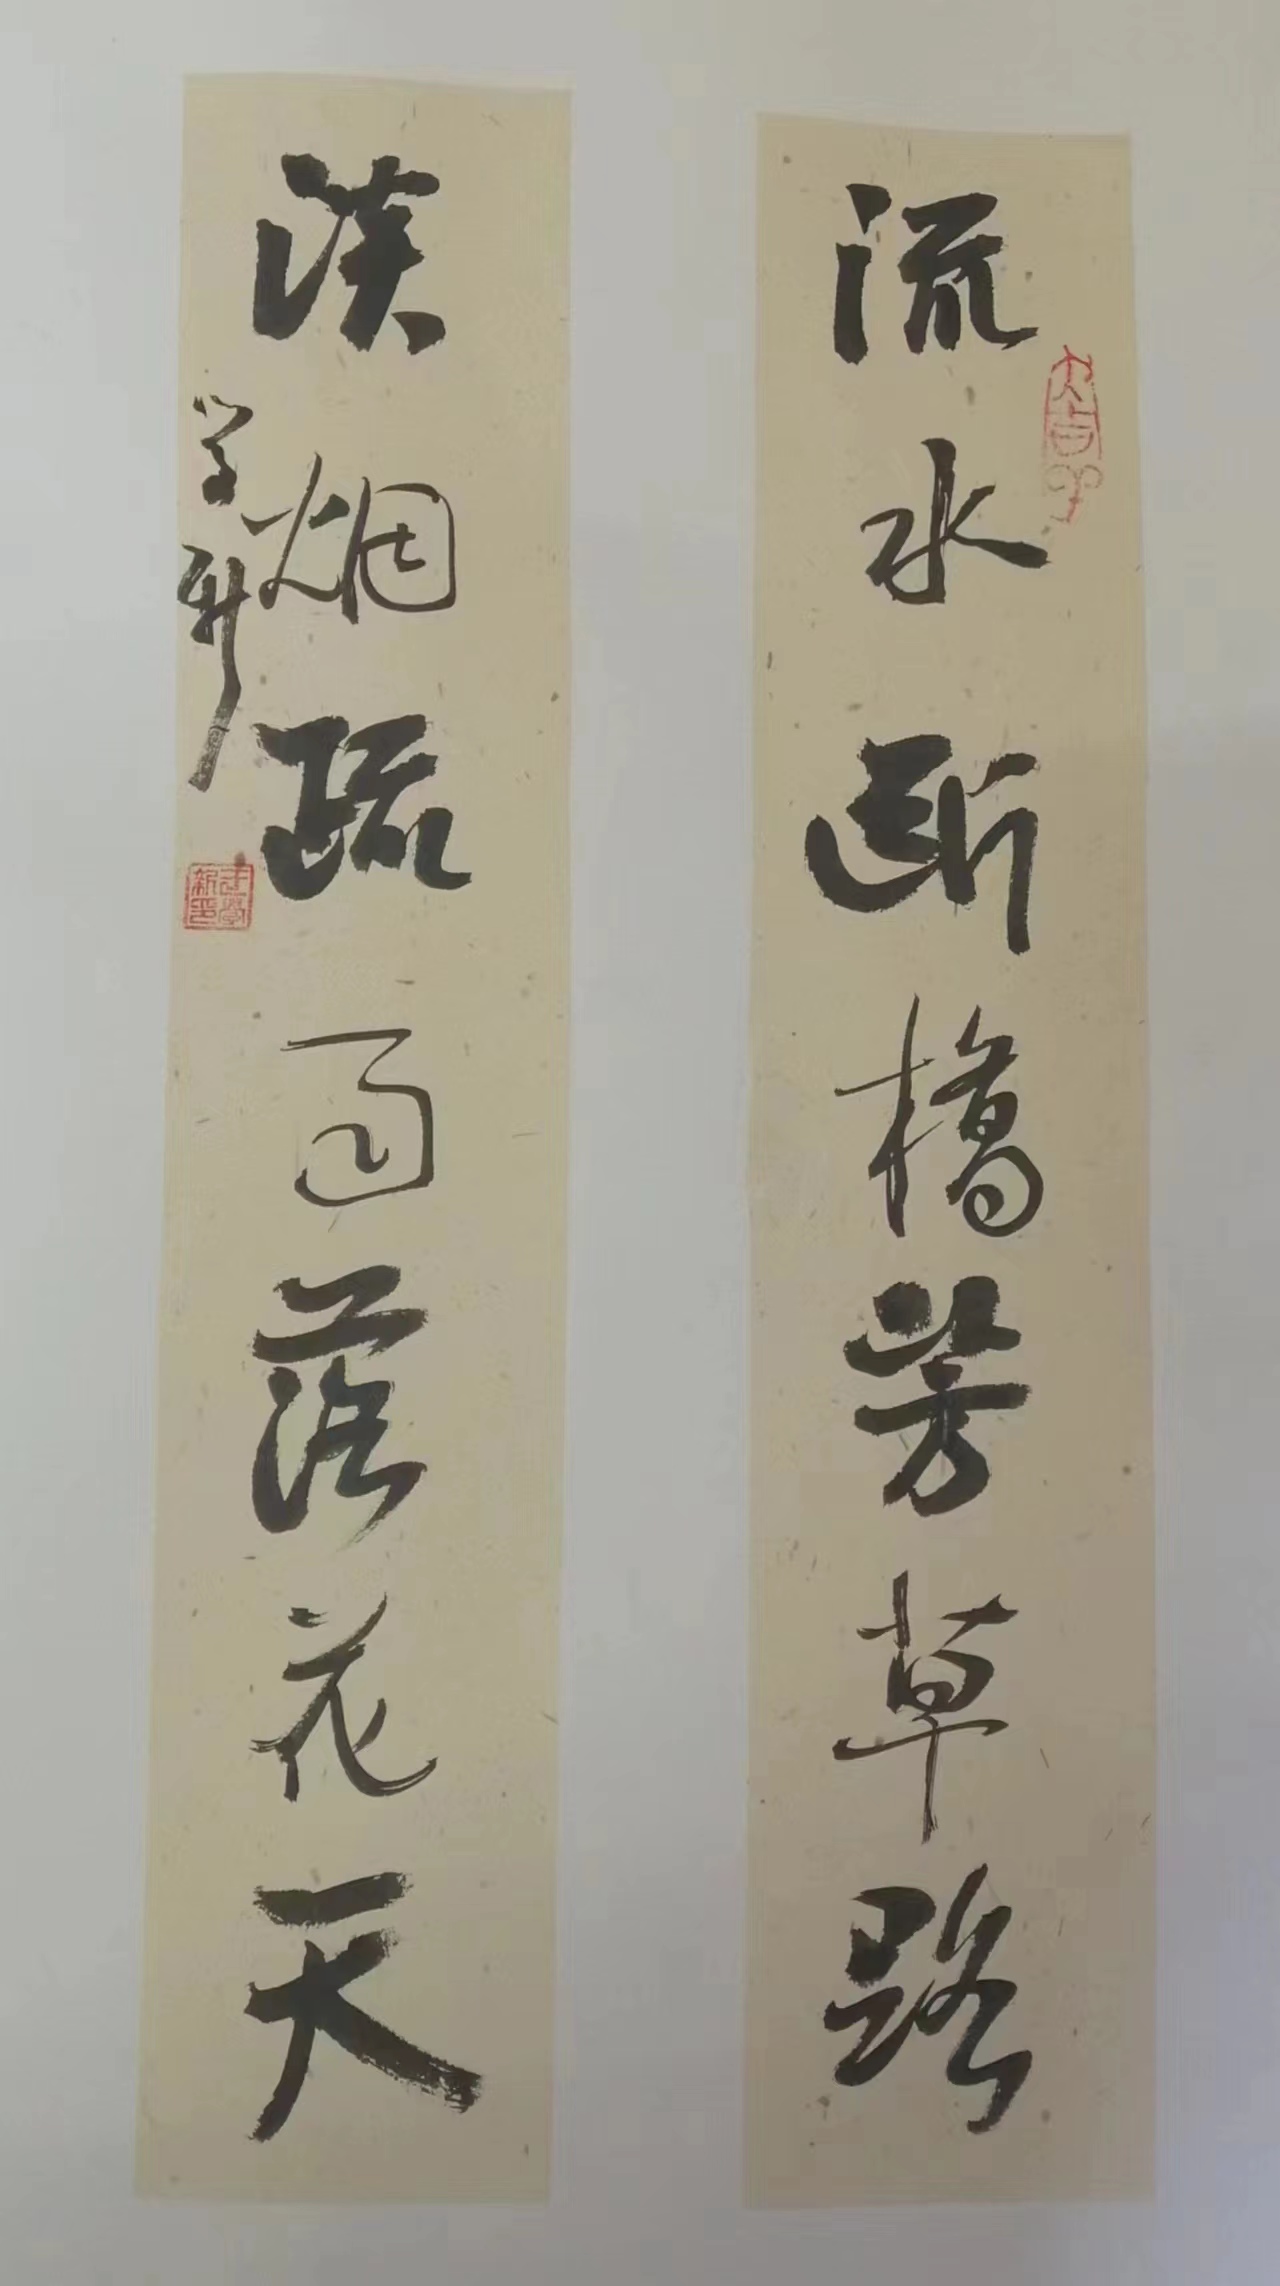 流水断橋芳草路
淡烟疏雨落花天
学新